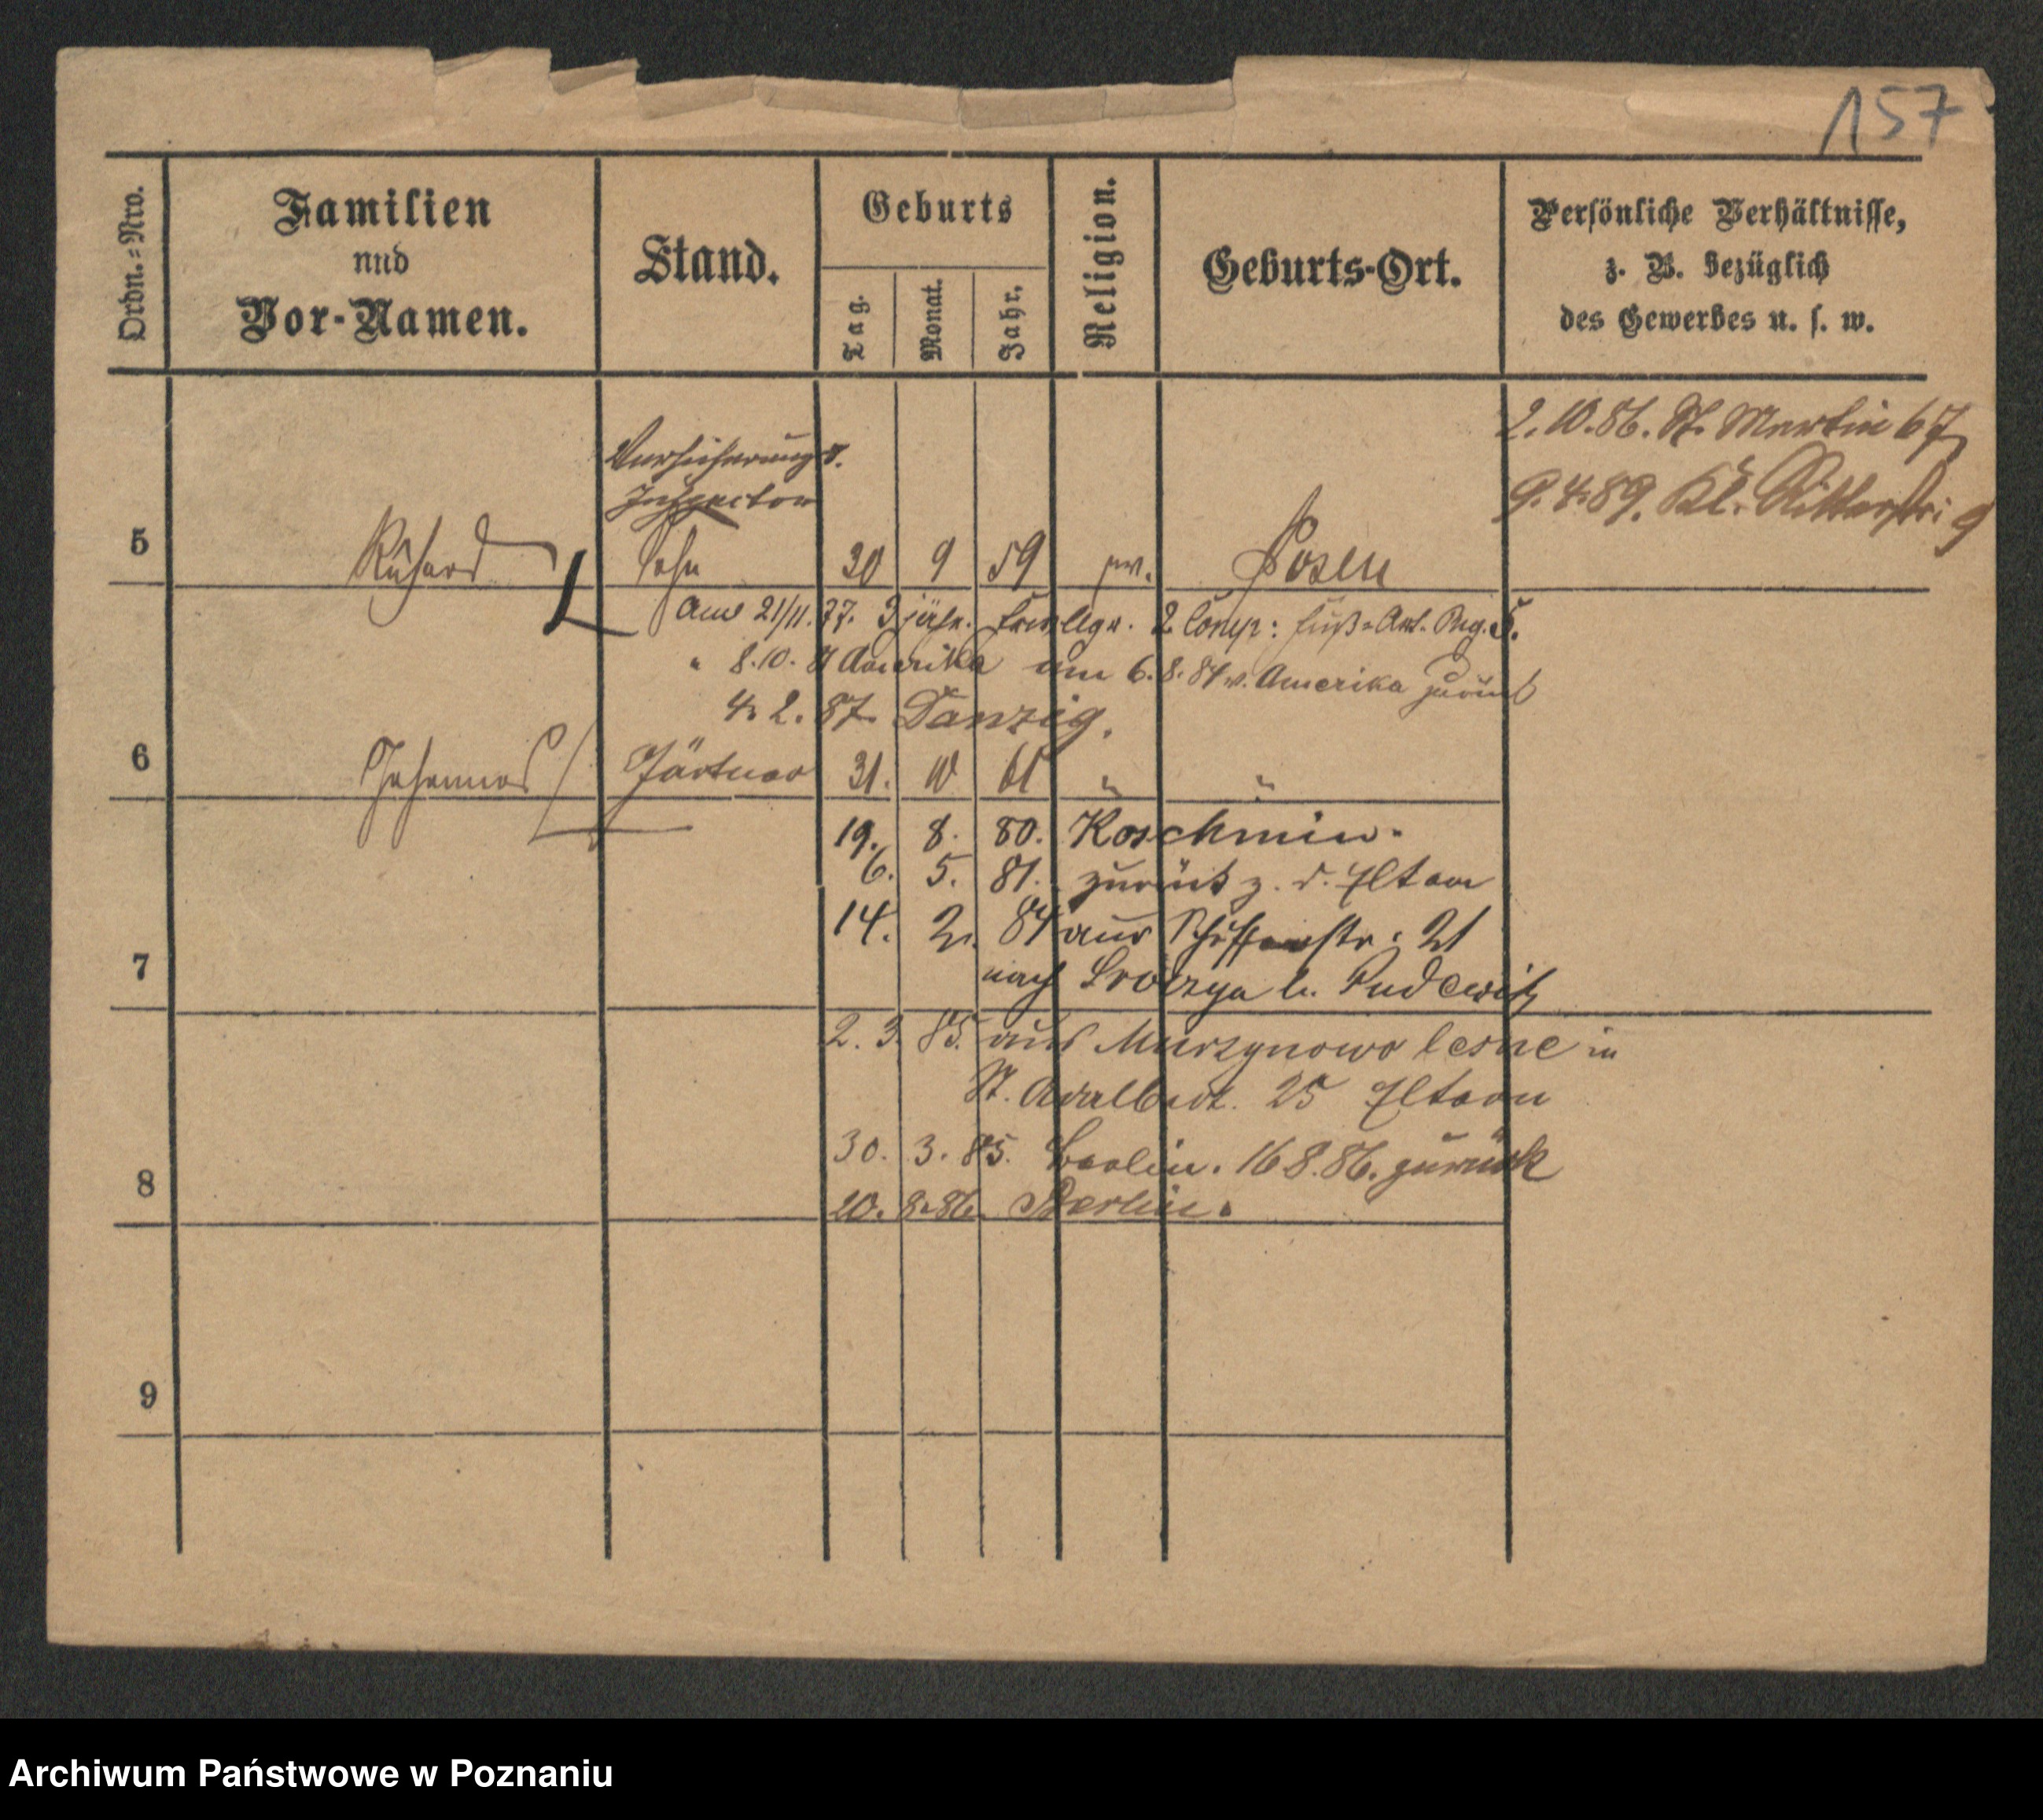 157
Ordn.=Nro.
Familien
und
Vor-Namen.
Stand.
Geburts
Tag.
Monat.
Jahr.
Religion.
Geburts-Ort.
Persönliche Verhältnisse,
z. B. bezüglich
des Gewerbes u. s. w.
2.10.86. St. Martin 67
9.4.89. Kl. Ritterstr: 9
Versicherungs.
Inspector
5 Richard Sohn 30 9 59 Posen
Am 21/11. 77. 3 jähr. Comp: Fuß=Art. Reg. 5.
" 8.10. Amerika am 6.8. v. Amerika zurück
4. 2. 87. Danzig.
6 Johannes Gärtner 31. 10 61 " "
19. 8. 80. Koschmin.
6. 5. 81. zurück z. d. Eltern
14. 2. 84 aus 21
7 nach b. Pudewitz
2. 3. 85. aus Murzynowo lesne in
St. Adalbert. 25 Eltern
30. 3. 85. Berlin. 16 8.86. zurück
8
20. 8. 86. Berlin.
9
Archiwum Państwowe w Poznaniu